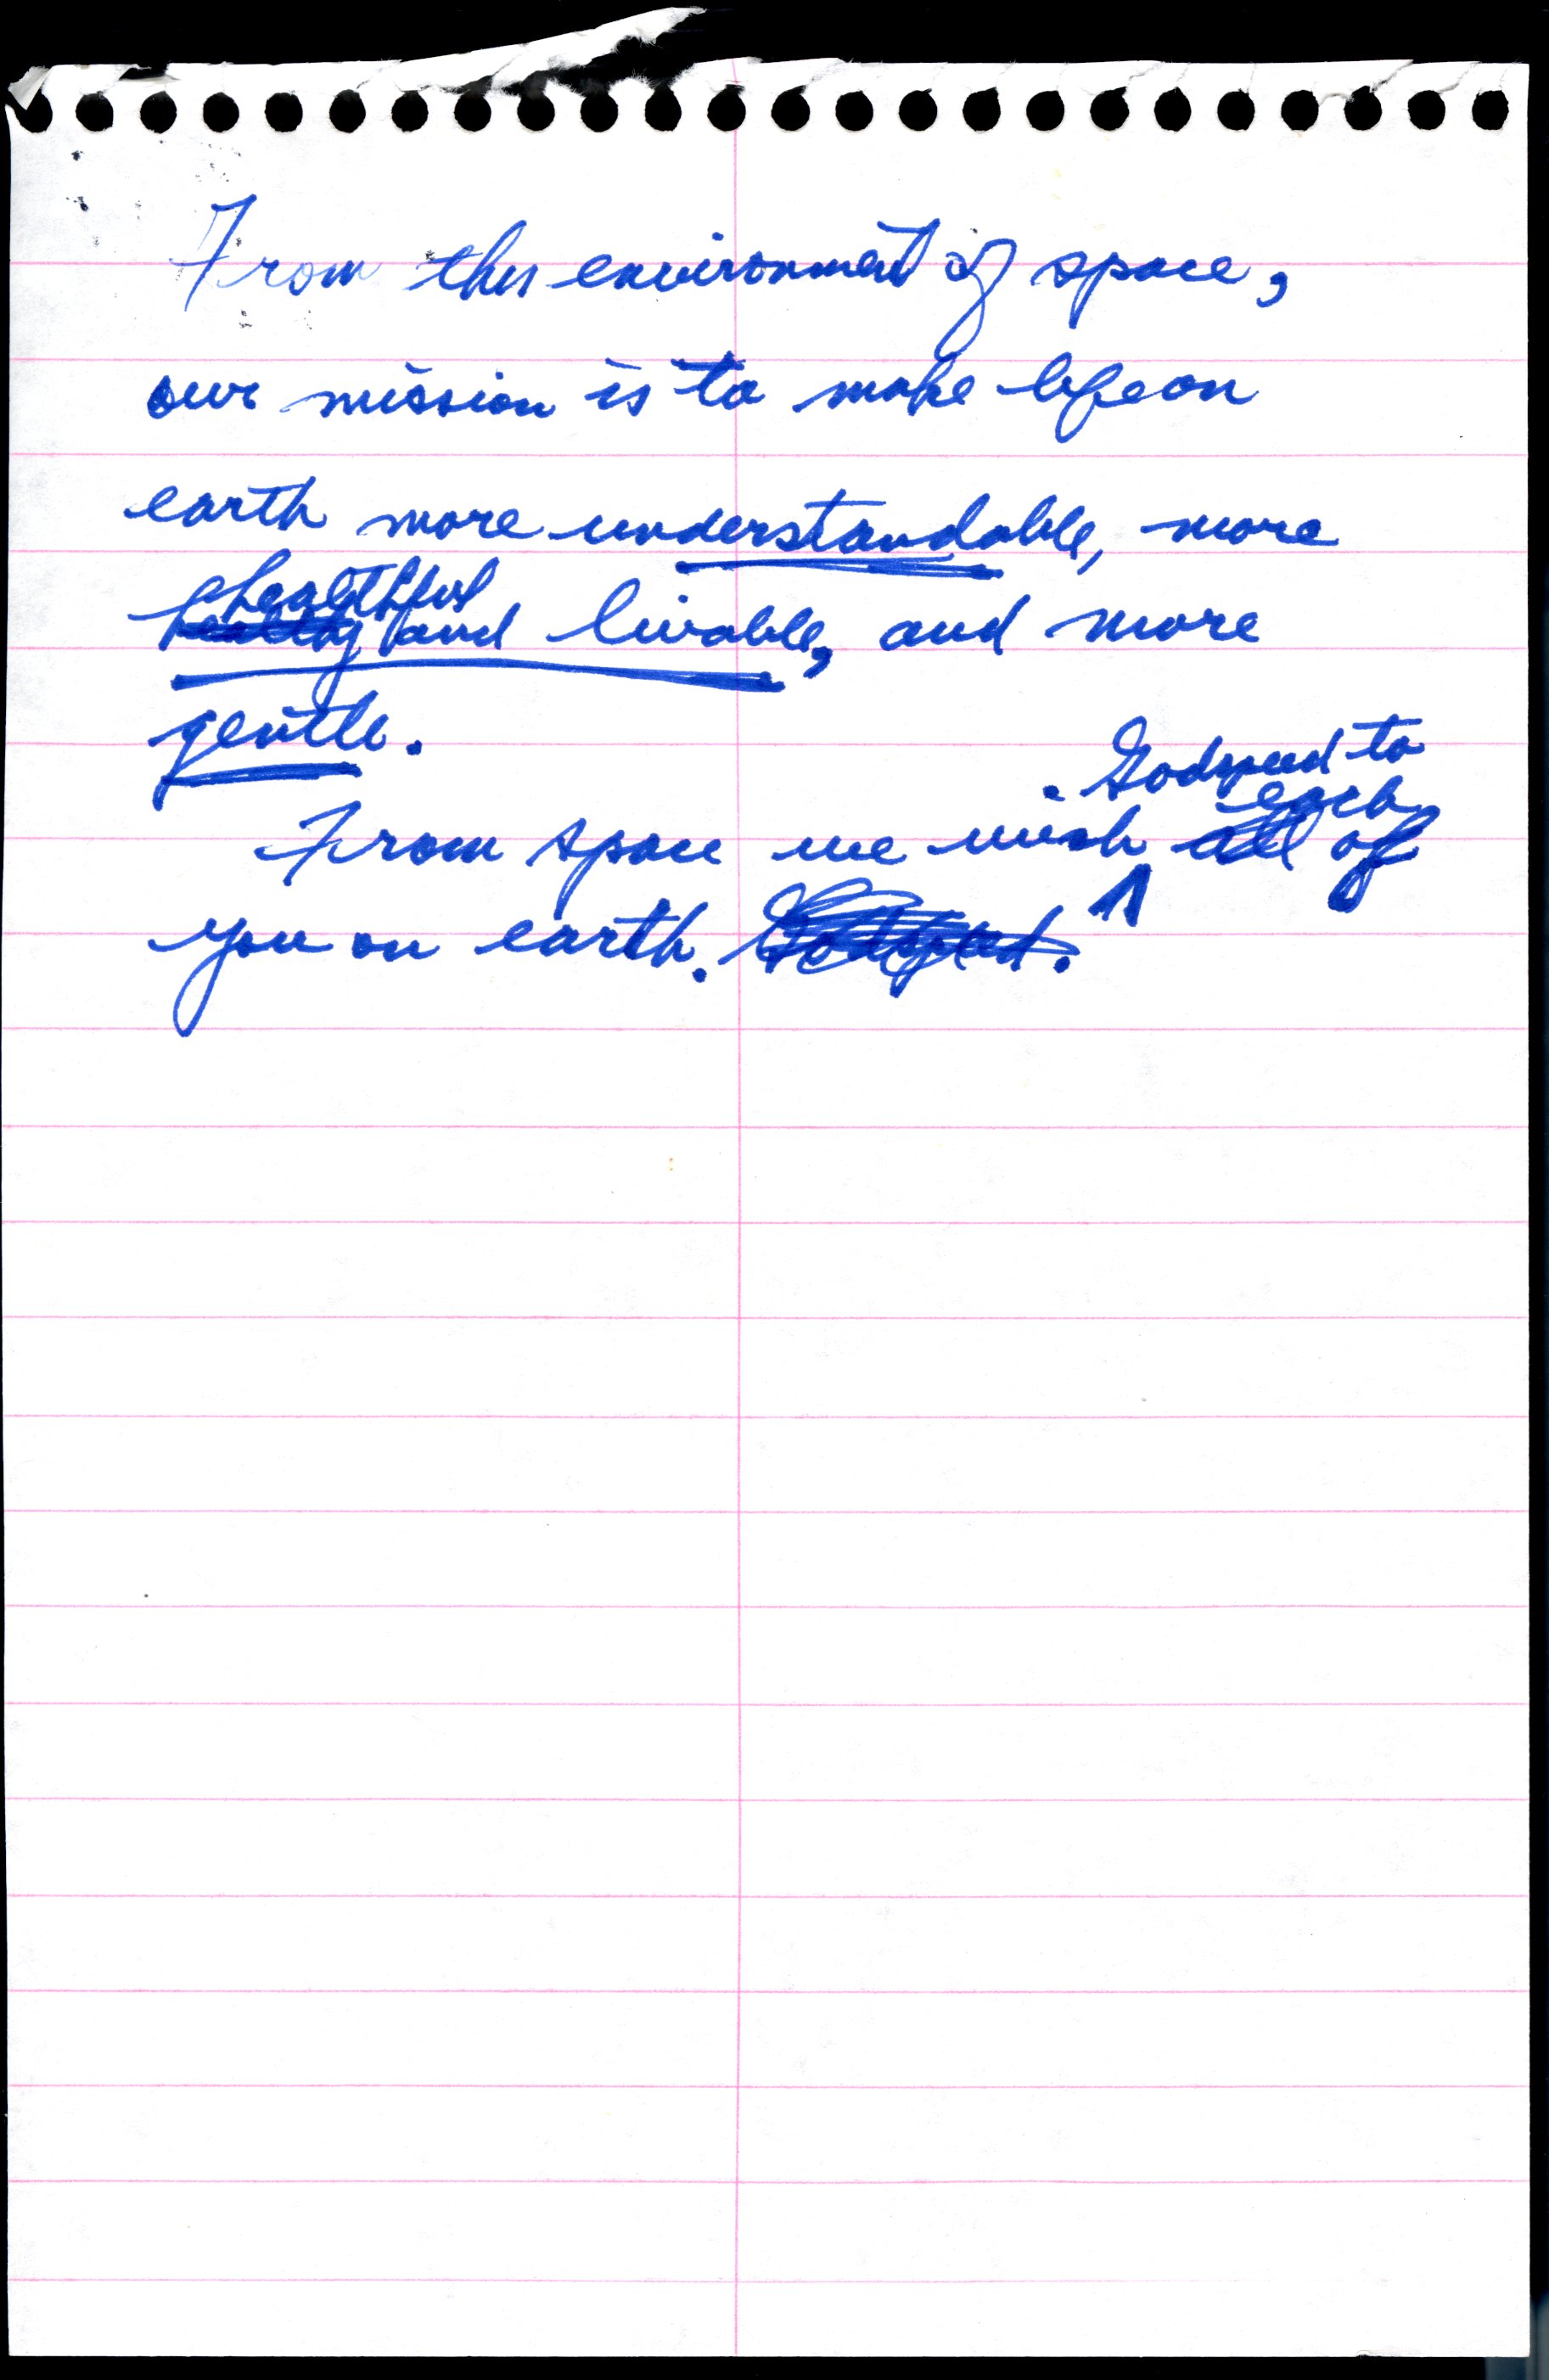 From this environment of space,
our mission is to make life on
earth more understandable, more
healthful
healthy and livable, and more
gentle.
. Godspeed to
each
From space we wish all of
you on earth. Godspeed.